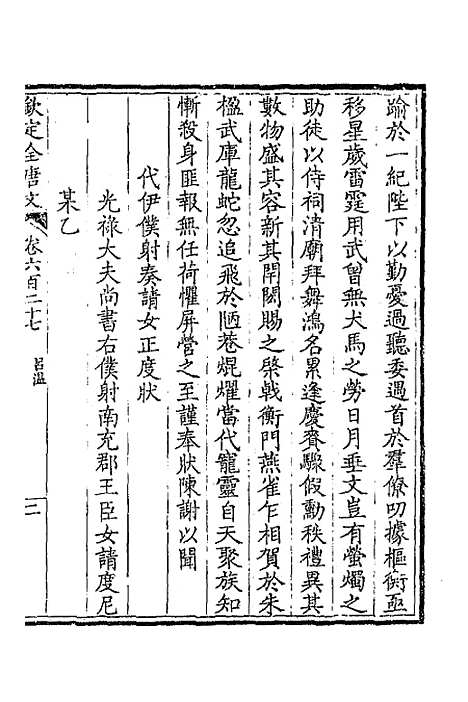 踰於一紀陛下以勤憂過聽委遇首於羣僚叨據樞衡亟
移星歲雷霆用武曾無犬馬之勞日月垂文豈有螢燭之
助徒以侍祠清廟拜舞鴻名累逢慶賚驟假勳秩禮異其
數物盛其容新其閈閎賜之棨戟衡門燕雀乍相賀於朱
楹武庫龍蛇忽追飛於陋巷焜燿當代寵靈自天聚族知
慚殺身匪報無任荷懼屏營之至謹奉狀陳謝以聞
代伊僕射奏請女正度狀
光祿大夫尚書右僕射南充郡王臣女請度尼
某乙
欽定全唐文
卷六百二十七
呂溫
二